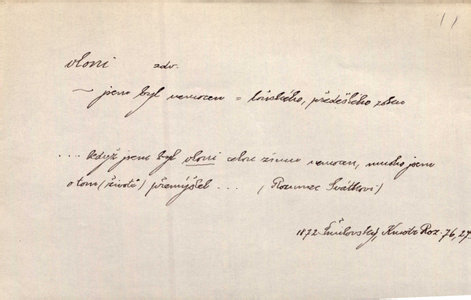 vloni adv.
~ jsem byl nemocen = loňského, předešlého roku
.... když jsem byl vloni celou zimu nemocen, mnoho jsem
o tom (životě) přemýšlel ... (Rozumec Svátkovi)
1872 Šmilovský, Kmotr Roz. 76, 27